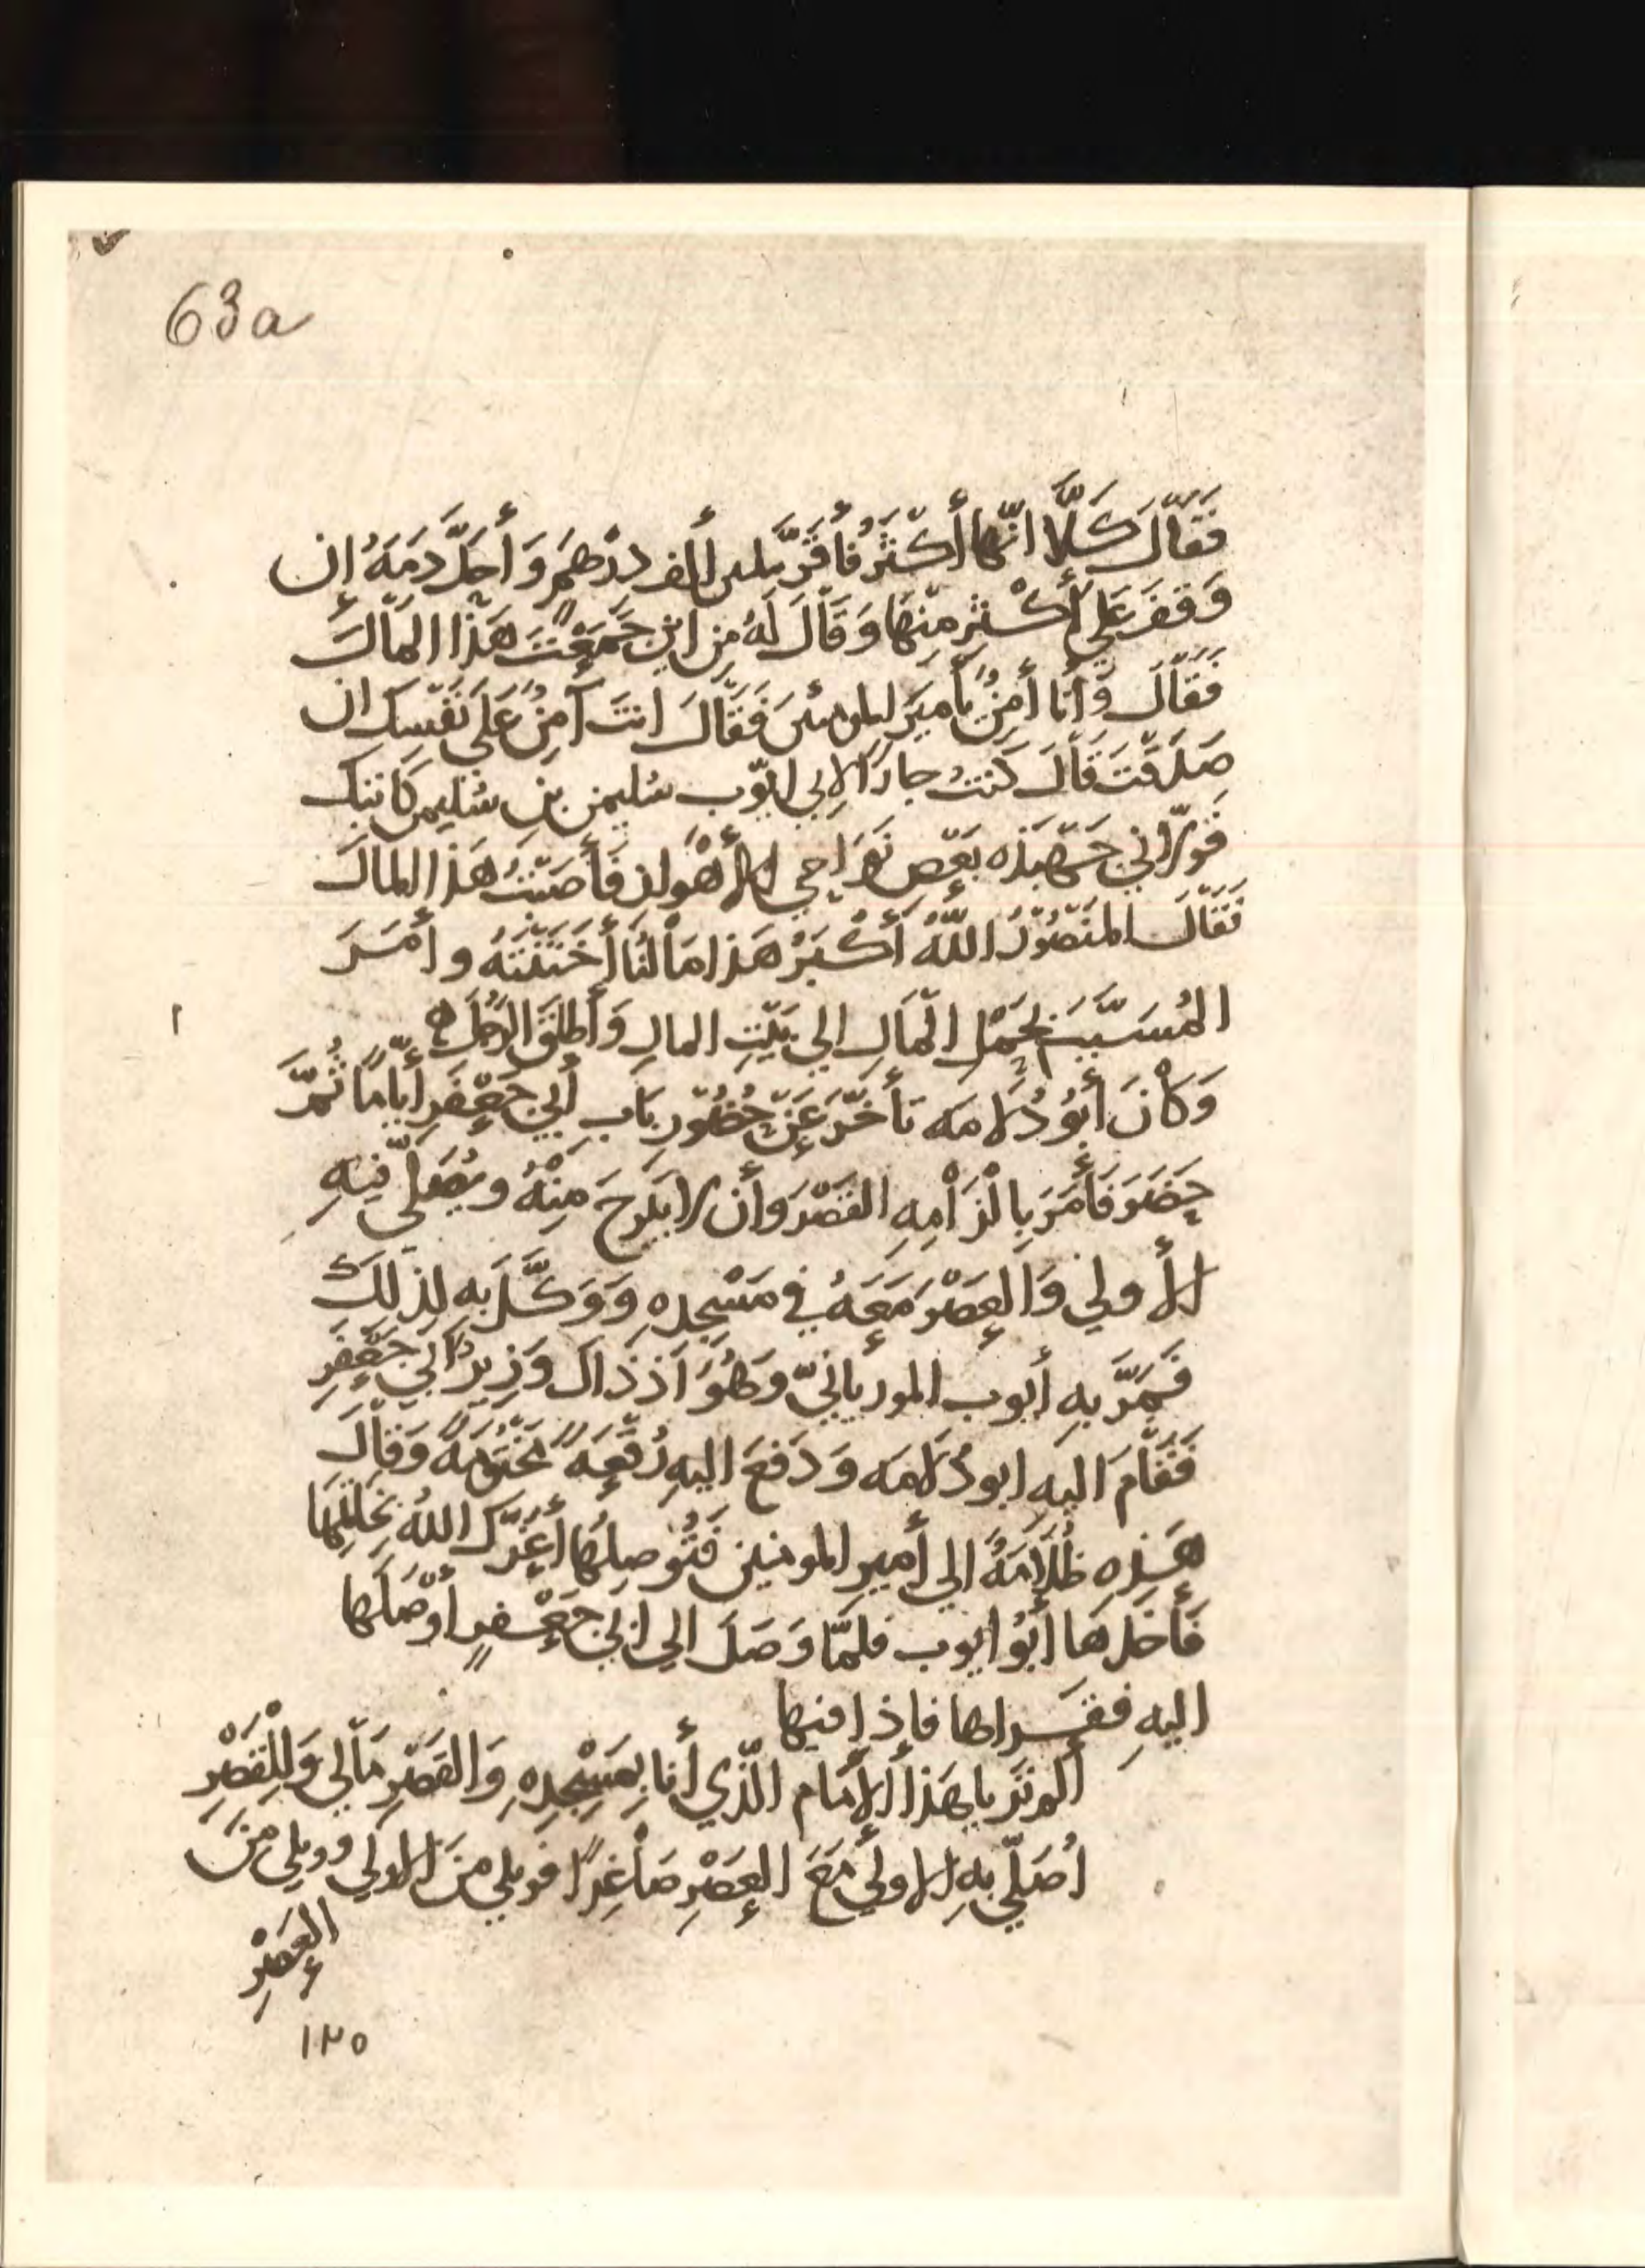 63a
فَقَالَ كَلَّا انّها أكْثَرُ فأقَرّ بلس ألف دِرْهَم وَأحَلَّ دَمَهُ إن
وَقفَ عَلي أكْثرِ مِنْهَا وَقَالَ لَهُ مِن اين جَمَعْتَ هَذَا المَالَ
فَقَالَ وَأنا أمِنٌ يأميرَ المومنينَ فَقَالَ انتَ آمِنٌ عَلَى نَفْسِكَ ان
صَدَقْتَ قَالَ كنتُ جارًا لابي ايّوب سُليمن بن سُليمن كاتبك
فَولّاني جَهْبَذَه بَعْض نَوَاحي الأهْواز فَأصَبْتُ هَذا المالَ
فَقَالَ المنْصُورُ اللّهُ أكْبَرُ هَذا مَالُنَا أخَتَنْتَهُ وأمَرَ
المُسَيَّبَ بحَمْلِ المَالِ الي بَيْتِ المالِ وَأطلَقَ الرّجُلَ ه
وَكانَ أبُو دُلامَه تأخّرَ عَنْ حُضُورِ بَابِ أبي جَعْفَرٍ أيّامًا ثُمّ
حَضَرَ فَأمَرَ بِالْزَامِهِ القَصْرَ وَأن لا يَبْرَحَ مِنْهُ ويُصَلّي فِيهِ
الأولي وَالعَصْرَ مَعَهُ في مَسْجِدِهِ وَوَكَّلَ بِهِ لِذلِكَ
فَمَرَّ بِهِ أبوب الموريانيّ وَهُوَ اذ ذَاك وَزِيرُ ابي جَعْفَرِ
فَقَامَ اليهِ ابو دُلامَه وَدَفعَ اليهِ رُقْعَهً مَخْتُومَهً وَقالَ
هَذِهِ ظُلَامَةٌ الي أميرِ المومنين فَتُوصِلُهَا أعَزّكَ اللهُ بخَاتمِهَا
فَأخَذهَا أبُو ايوب فلَمّا وَصَلَ الي ابي جَعْفرٍ أوْصَلَهَا
اليهِ فقرَاها فإذا فيها
ألم تَرَيا هَذا الأمَام الّذِي أنا بِمَسْجِدِهِ وَالقَصْرِ مَا لي وَلِلْقَصْرِ
اُصَلّي بِهِ الاولي مَعَ العَصْرِ صَاغِرًا فويلي مِنَ الاولي وويلي مِنَ
العَصْرِ
١٢٥